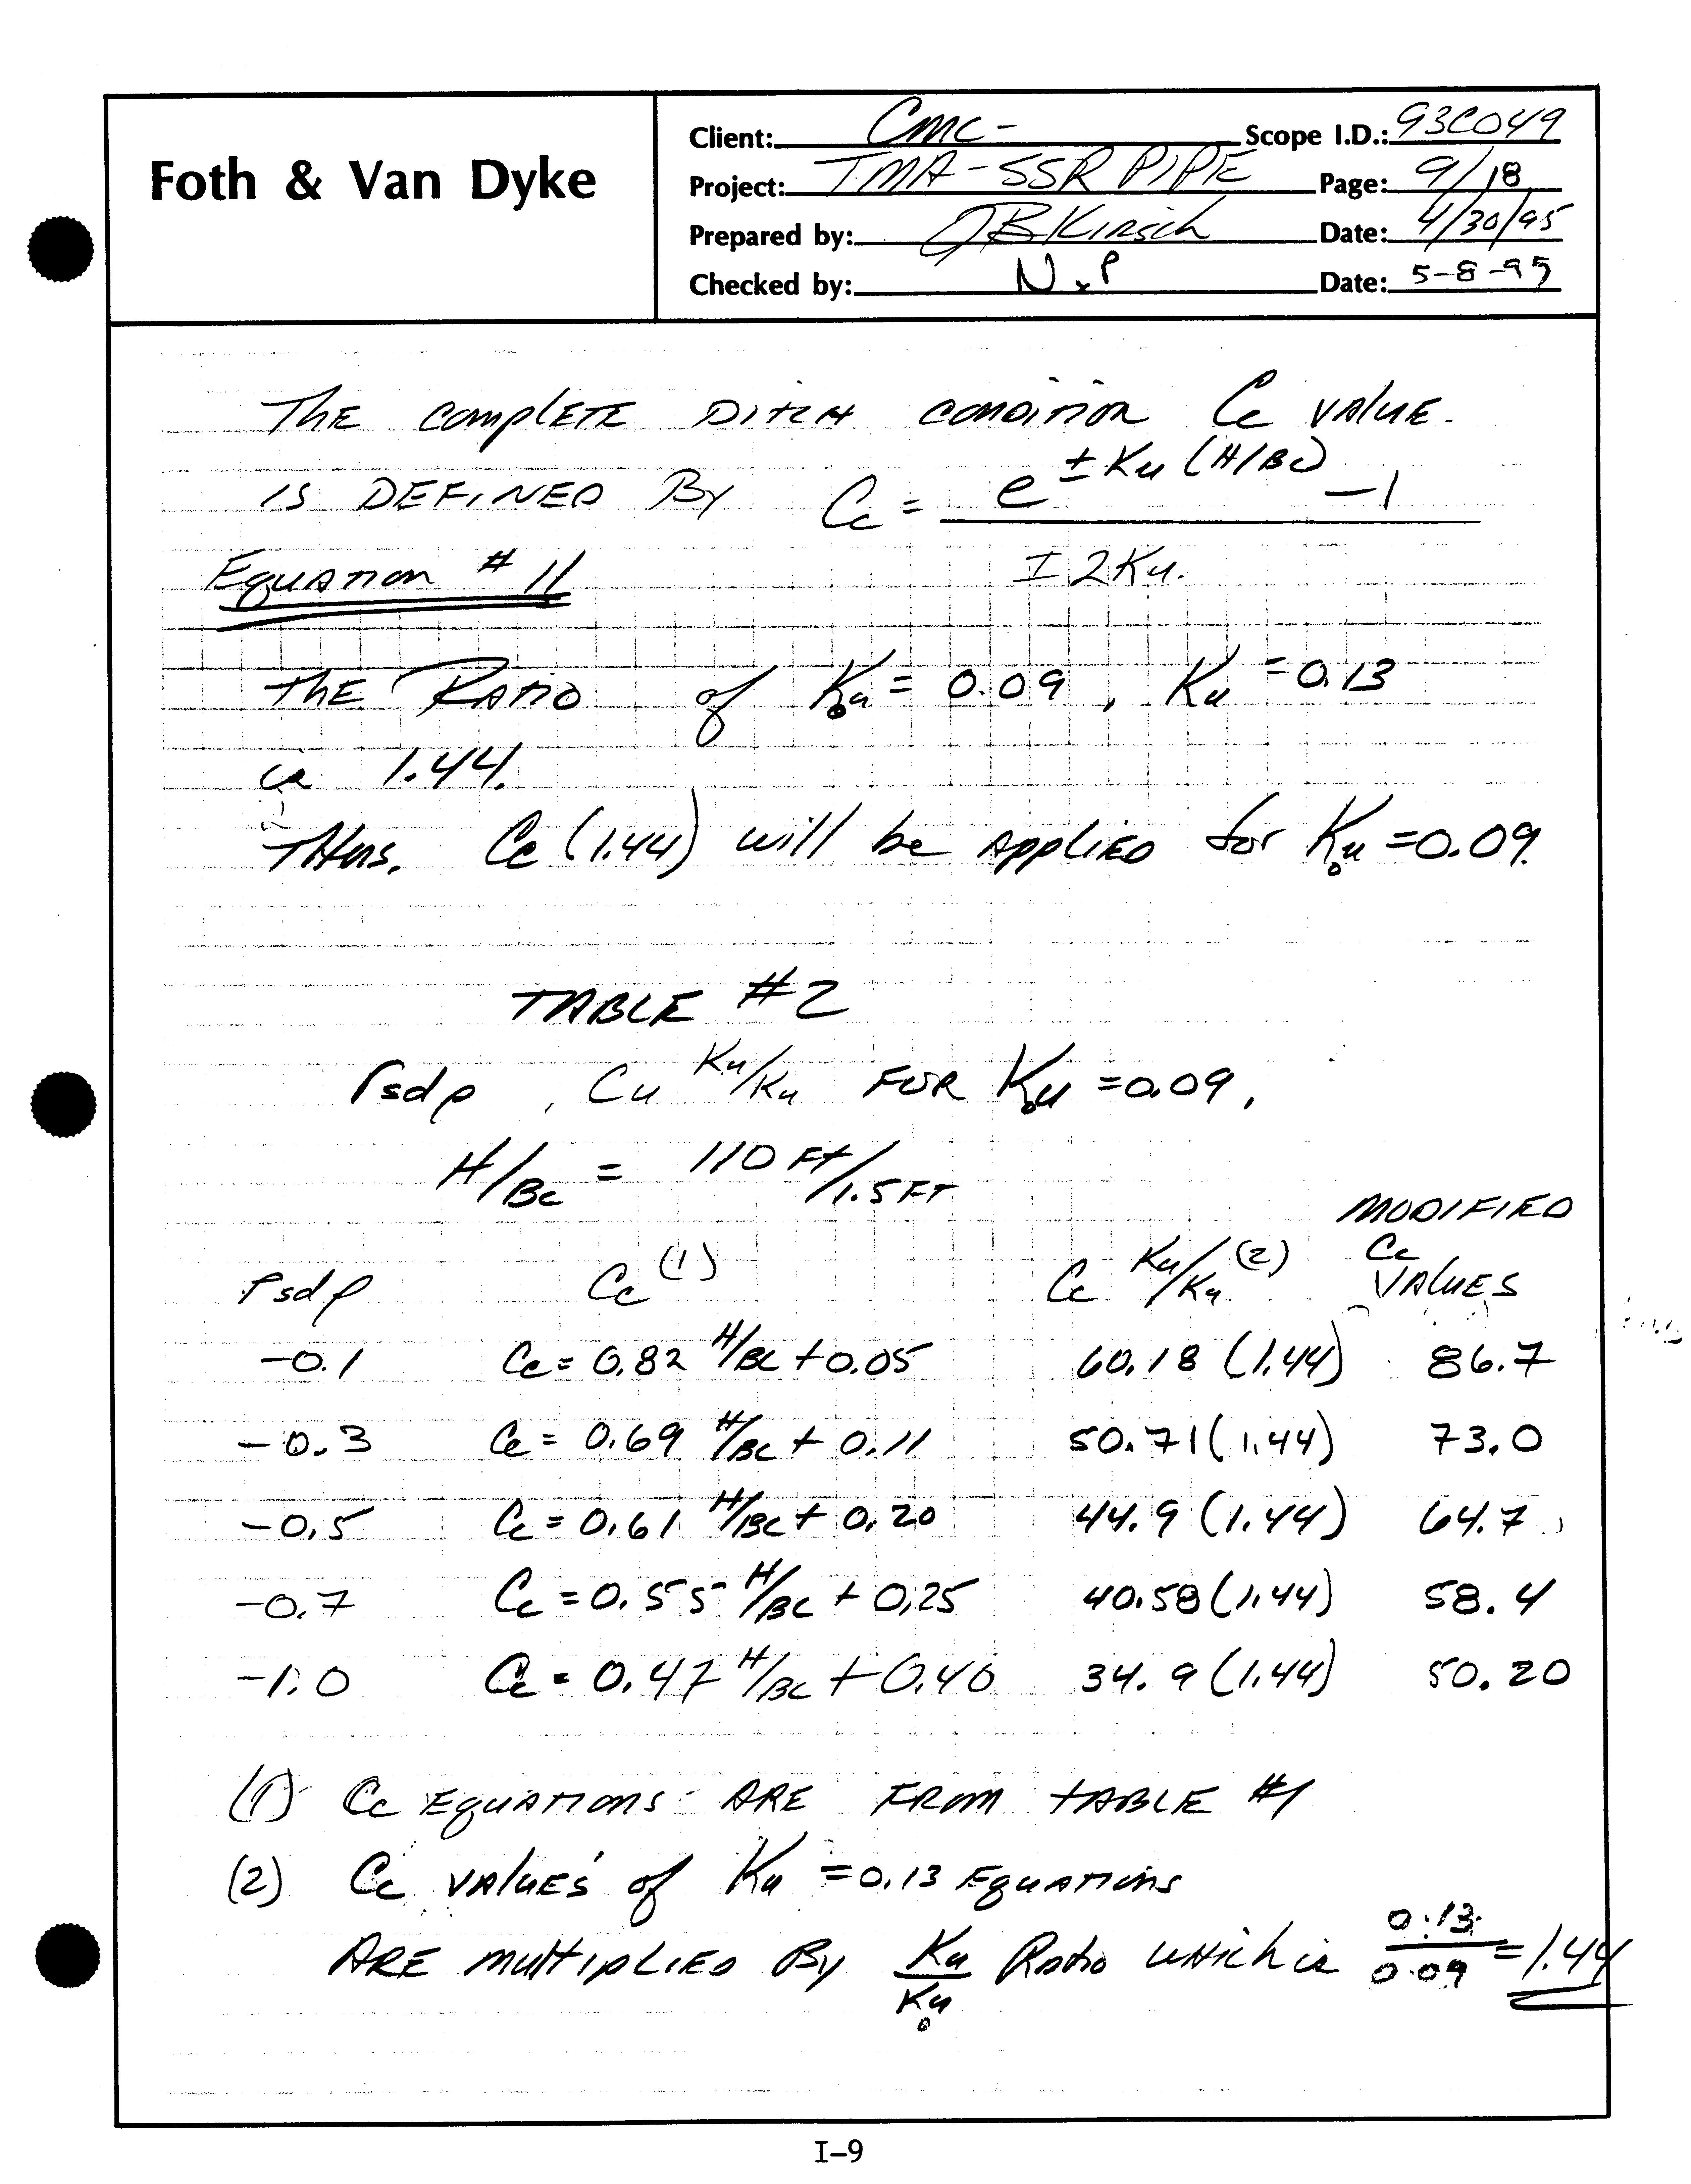 Foth & Van Dyke
Client: CMC- Scope I.D.: 93C049
Project: TMA-SSR PIPE Page: 9/18
Prepared by: JBKirsch Date: 4/30/95
Checked by: NxP Date: 5-8-95
THE COMPLETE DITCH CONDITION Cc VALUE
IS DEFINED By Cc = e^±Ku(H/Bc) -1
± 2Ku.
Equation #11
THE RATIO of Kou = 0.09, Ku = 0.13
is 1.44.
THus. Cc (1.44) will be APPLIED for Kou = 0.09.
TABLE #2
rsdp, Cu Ku/Ku FOR Kou = 0.09,
H/Bc = 110 Ft/1.5 FT
MODIFIED
rsdp Cc (1) Cc Ku/Ku (2) Cc VALUES
-0.1 Cc = 0.82 H/Bc + 0.05 60.18 (1.44) 86.7
-0.3 Cc = 0.69 H/Bc + 0.11 50.71 (1.44) 73.0
-0.5 Cc = 0.61 H/Bc + 0.20 44.9 (1.44) 64.7
-0.7 Cc = 0.55 H/Bc + 0.25 40.58 (1.44) 58.4
-1.0 Cc = 0.47 H/Bc + 0.40 34.9 (1.44) 50.20
(1) Cc EQUATIONS ARE FROM TABLE #1
(2) Cc VALUE'S of Ku = 0.13 EQUATIONS
ARE MULTIPLIED By Ku/Kou Ratio which is 0.13/0.09 = 1.44
I-9